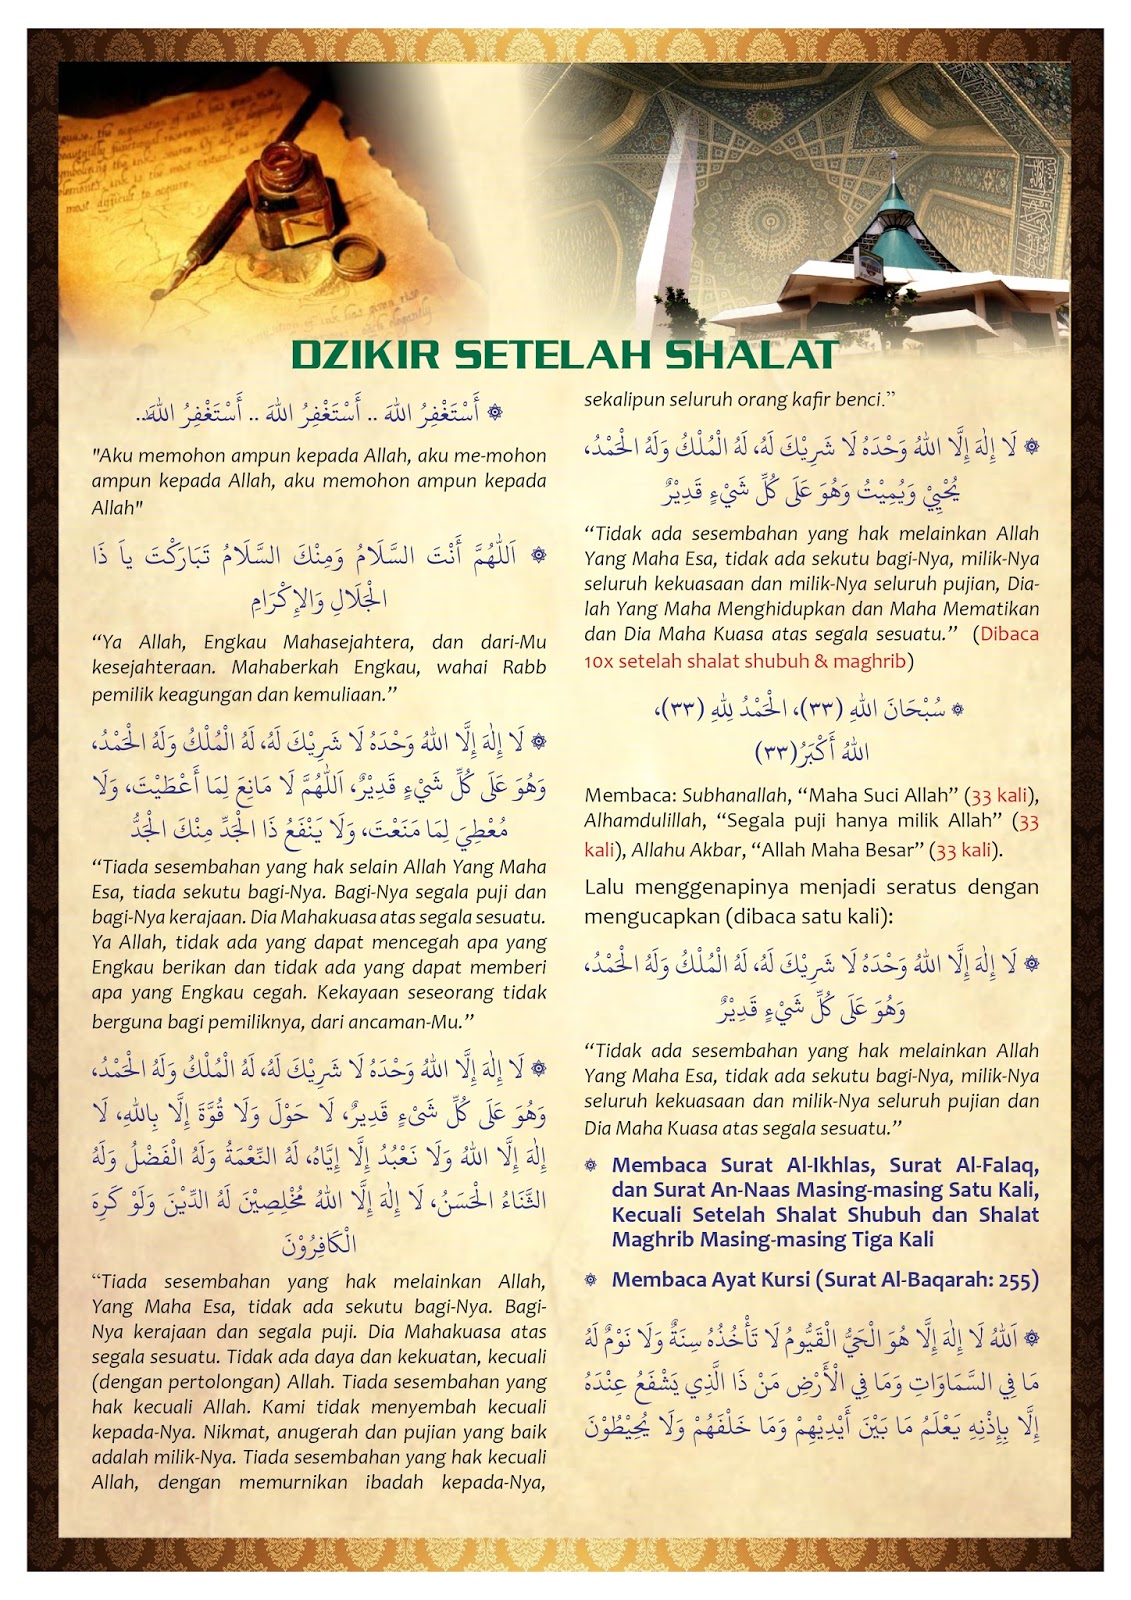 DZIKIR SETELAH SHALAT
۞ أَسْتَغْفِرُ اللهَ .. أَسْتَغْفِرُ اللهَ .. أَسْتَغْفِرُ اللهَ..
"Aku memohon ampun kepada Allah, aku me-mohon
ampun kepada Allah, aku memohon ampun kepada
Allah"
۞ اَللّٰهُمَّ أَنْتَ السَّلَامُ وَمِنْكَ السَّلَامُ تَبَارَكْتَ ياَ ذَا
الْجَلَالِ وَالإِكْرَامِ
“Ya Allah, Engkau Mahasejahtera, dan dari-Mu
kesejahteraan. Mahaberkah Engkau, wahai Rabb
pemilik keagungan dan kemuliaan.”
۞ لَا إِلٰهَ إِلَّا اللهُ وَحْدَهُ لَا شَرِيْكَ لَهُ، لَهُ الْمُلْكُ وَلَهُ الْحَمْدُ،
وَهُوَ عَلَى كُلِّ شَيْءٍ قَدِيْرٌ، اَللّٰهُمَّ لَا مَانِعَ لِمَا أَعْطَيْتَ، وَلَا
مُعْطِيَ لِمَا مَنَعْتَ، وَلَا يَنْفَعُ ذَا الْجَدِّ مِنْكَ الْجَدُّ
“Tiada sesembahan yang hak selain Allah Yang Maha
Esa, tiada sekutu bagi-Nya. Bagi-Nya segala puji dan
bagi-Nya kerajaan. Dia Mahakuasa atas segala sesuatu.
Ya Allah, tidak ada yang dapat mencegah apa yang
Engkau berikan dan tidak ada yang dapat memberi
apa yang Engkau cegah. Kekayaan seseorang tidak
berguna bagi pemiliknya, dari ancaman-Mu.”
۞ لَا إِلٰهَ إِلَّا اللهُ وَحْدَهُ لَا شَرِيْكَ لَهُ، لَهُ الْمُلْكُ وَلَهُ الْحَمْدُ،
وَهُوَ عَلَى كُلِّ شَىْءٍ قَدِيرٌ، لَا حَوْلَ وَلَا قُوَّةَ إِلَّا بِاللهِ، لَا
إِلٰهَ إِلَّا اللهُ وَلَا نَعْبُدُ إِلَّا إِيَّاهُ، لَهُ النِّعْمَةُ وَلَهُ الْفَضْلُ وَلَهُ
الثَّنَاءُ الْحَسَنُ، لَا إِلٰهَ إِلَّا اللهُ مُخْلِصِيْنَ لَهُ الدِّيْنَ وَلَوْ كَرِهَ
الْكَافِرُوْنَ
“Tiada sesembahan yang hak melainkan Allah,
Yang Maha Esa, tidak ada sekutu bagi-Nya. Bagi-
Nya kerajaan dan segala puji. Dia Mahakuasa atas
segala sesuatu. Tidak ada daya dan kekuatan, kecuali
(dengan pertolongan) Allah. Tiada sesembahan yang
hak kecuali Allah. Kami tidak menyembah kecuali
kepada-Nya. Nikmat, anugerah dan pujian yang baik
adalah milik-Nya. Tiada sesembahan yang hak kecuali
Allah, dengan memurnikan ibadah kepada-Nya,
sekalipun seluruh orang kafir benci.”
۞ لَا إِلٰهَ إِلَّا اللهُ وَحْدَهُ لَا شَرِيْكَ لَهُ، لَهُ الْمُلْكُ وَلَهُ الْحَمْدُ،
يُحْيِيْ وَيُمِيْتُ وَهُوَ عَلَى كُلِّ شَيْءٍ قَدِيْرٌ
“Tidak ada sesembahan yang hak melainkan Allah
Yang Maha Esa, tidak ada sekutu bagi-Nya, milik-Nya
seluruh kekuasaan dan milik-Nya seluruh pujian, Dia-
lah Yang Maha Menghidupkan dan Maha Mematikan
dan Dia Maha Kuasa atas segala sesuatu.” (Dibaca
10x setelah shalat shubuh & maghrib)
۞ سُبْحَانَ اللهِ (٣٣)، الْحَمْدُ لِلهِ (٣٣)،
اللهُ أَكْبَرُ(٣٣)
Membaca: Subhanallah, “Maha Suci Allah” (33 kali),
Alhamdulillah, “Segala puji hanya milik Allah” (33
kali), Allahu Akbar, “Allah Maha Besar” (33 kali).
Lalu menggenapinya menjadi seratus dengan
mengucapkan (dibaca satu kali):
۞ لَا إِلٰهَ إِلَّا اللهُ وَحْدَهُ لَا شَرِيْكَ لَهُ، لَهُ الْمُلْكُ وَلَهُ الْحَمْدُ،
وَهُوَ عَلَى كُلِّ شَيْءٍ قَدِيْرٌ
“Tidak ada sesembahan yang hak melainkan Allah
Yang Maha Esa, tidak ada sekutu bagi-Nya, milik-Nya
seluruh kekuasaan dan milik-Nya seluruh pujian dan
Dia Maha Kuasa atas segala sesuatu.”
۞ Membaca Surat Al-Ikhlas, Surat Al-Falaq,
dan Surat An-Naas Masing-masing Satu Kali,
Kecuali Setelah Shalat Shubuh dan Shalat
Maghrib Masing-masing Tiga Kali
۞ Membaca Ayat Kursi (Surat Al-Baqarah: 255)
۞ اَللهُ لَا إِلٰهَ إِلَّا هُوَ الْحَيُّ الْقَيُّومُ لَا تَأْخُذُهُ سِنَةٌ وَلَا نَوْمٌ لَهُ
مَا فِي السَّمَاوَاتِ وَمَا فِي الْأَرْضِ مَنْ ذَا الَّذِي يَشْفَعُ عِنْدَهُ
إِلَّا بِإِذْنِهِ يَعْلَمُ مَا بَيْنَ أَيْدِيْهِمْ وَمَا خَلْفَهُمْ وَلَا يُحِيْطُوْنَ